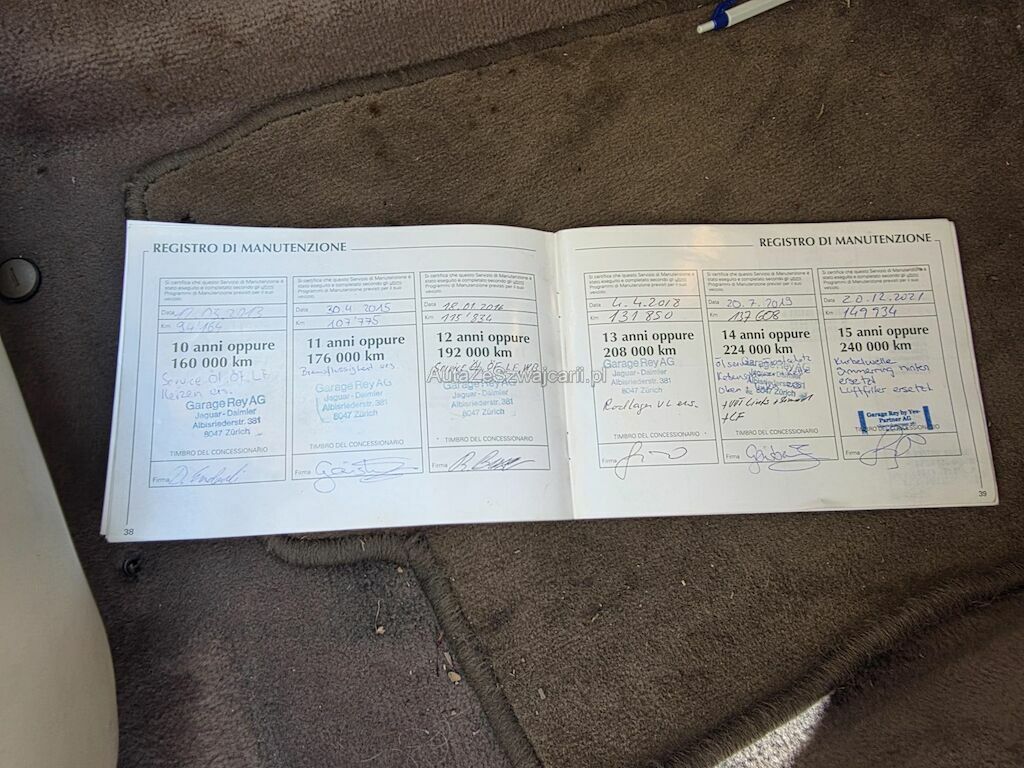 REGISTRO DI MANUTENZIONE
Si certifica che questo Servizio di Manutenzione è
stato eseguito e completato secondo gli ultimi
Programmi di Manutenzione previsti per il suo
veicolo.
Data
Km 94'164
10 anni oppure
160 000 km
Service
Kerzen ers.
Garage Rey AG
Jaguar - Daimler
Albisriederstr. 381
8047 Zürich
TIMBRO DEL CONCESSIONARIO
Firma
38
Si certifica che questo Servizio di Manutenzione è
stato eseguito e completato secondo gli ultimi
Programmi di Manutenzione previsti per il suo
veicolo.
Data 30.4.2015
Km 107'775
11 anni oppure
176 000 km
Bremsflüssigkeit ers.
Garage Rey AG
Jaguar - Daimler
Albisriederstr. 381
8047 Zürich
TIMBRO DEL CONCESSIONARIO
Firma
Si certifica che questo Servizio di Manutenzione è
stato eseguito e completato secondo gli ultimi
Programmi di Manutenzione previsti per il suo
veicolo.
Data 18.01.2016
Km 115'834
12 anni oppure
192 000 km
Garage Rey AG
Jaguar - Daimler
Albisriederstr. 381
8047 Zürich
TIMBRO DEL CONCESSIONARIO
Firma
REGISTRO DI MANUTENZIONE
Si certifica che questo Servizio di Manutenzione è
stato eseguito e completato secondo gli ultimi
Programmi di Manutenzione previsti per il suo
veicolo.
Data 4.4.2018
Km 131 850
13 anni oppure
208 000 km
Garage Rey AG
Jaguar - Daimler
Albisriederstr. 381
8047 Zürich
Radlager VL ers.
TIMBRO DEL CONCESSIONARIO
Firma
Si certifica che questo Servizio di Manutenzione è
stato eseguito e completato secondo gli ultimi
Programmi di Manutenzione previsti per il suo
veicolo.
Data 20.7.2019
Km 137 608
14 anni oppure
224 000 km
8047 Zürich
TIMBRO DEL CONCESSIONARIO
Firma
Si certifica che questo Servizio di Manutenzione è
stato eseguito e completato secondo gli ultimi
Programmi di Manutenzione previsti per il suo
veicolo.
Data 20.12.2021
Km 149 934
15 anni oppure
240 000 km
Kurbelwelle
Simmerring hinten
ersetzt
Luftfilter ersetzt
Garage Rey by Yes-
Partner AG
TIMBRO DEL CONCESSIONARIO
Firma
39
AutaZeSzwajcarii.pl